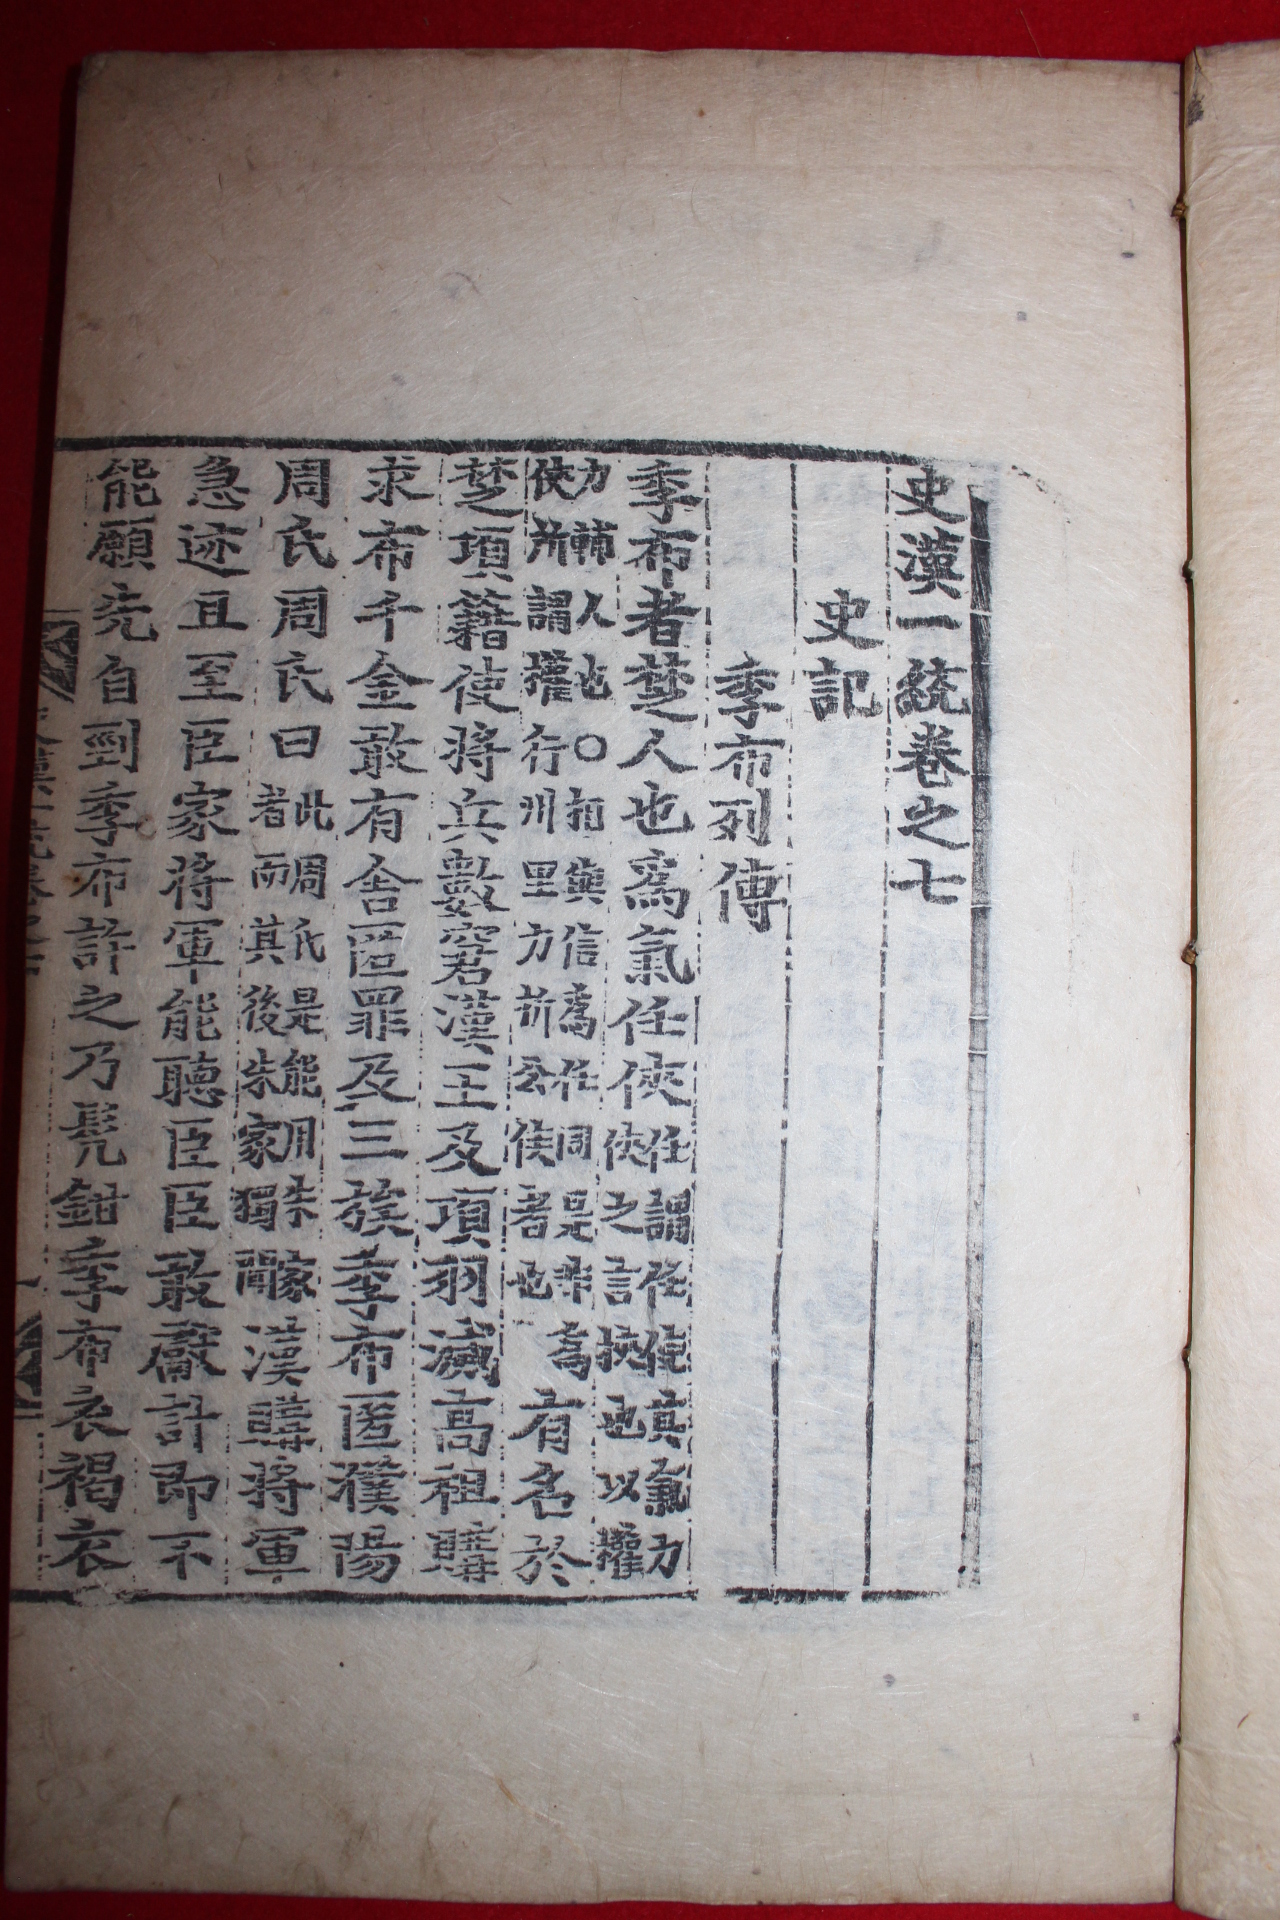 史漢一統卷之七
史記
季布列傳
季布者楚人也爲氣任俠任謂任使其氣力俠之言挾也以權
力輔人也○相與信爲任同是非俠所謂權行州里力折公侯者也爲有名於
楚項籍使將兵數窘漢王及項羽滅高祖購
求布千金敢有舍匿罪及三族季布匿濮陽
周氏周氏曰此周氏是能用朱家者而其後朱家獨聞漢購將軍
急迹且至臣家將軍能聽臣臣敢獻計即不
能願先自剄季布許之乃髡鉗季布衣褐衣